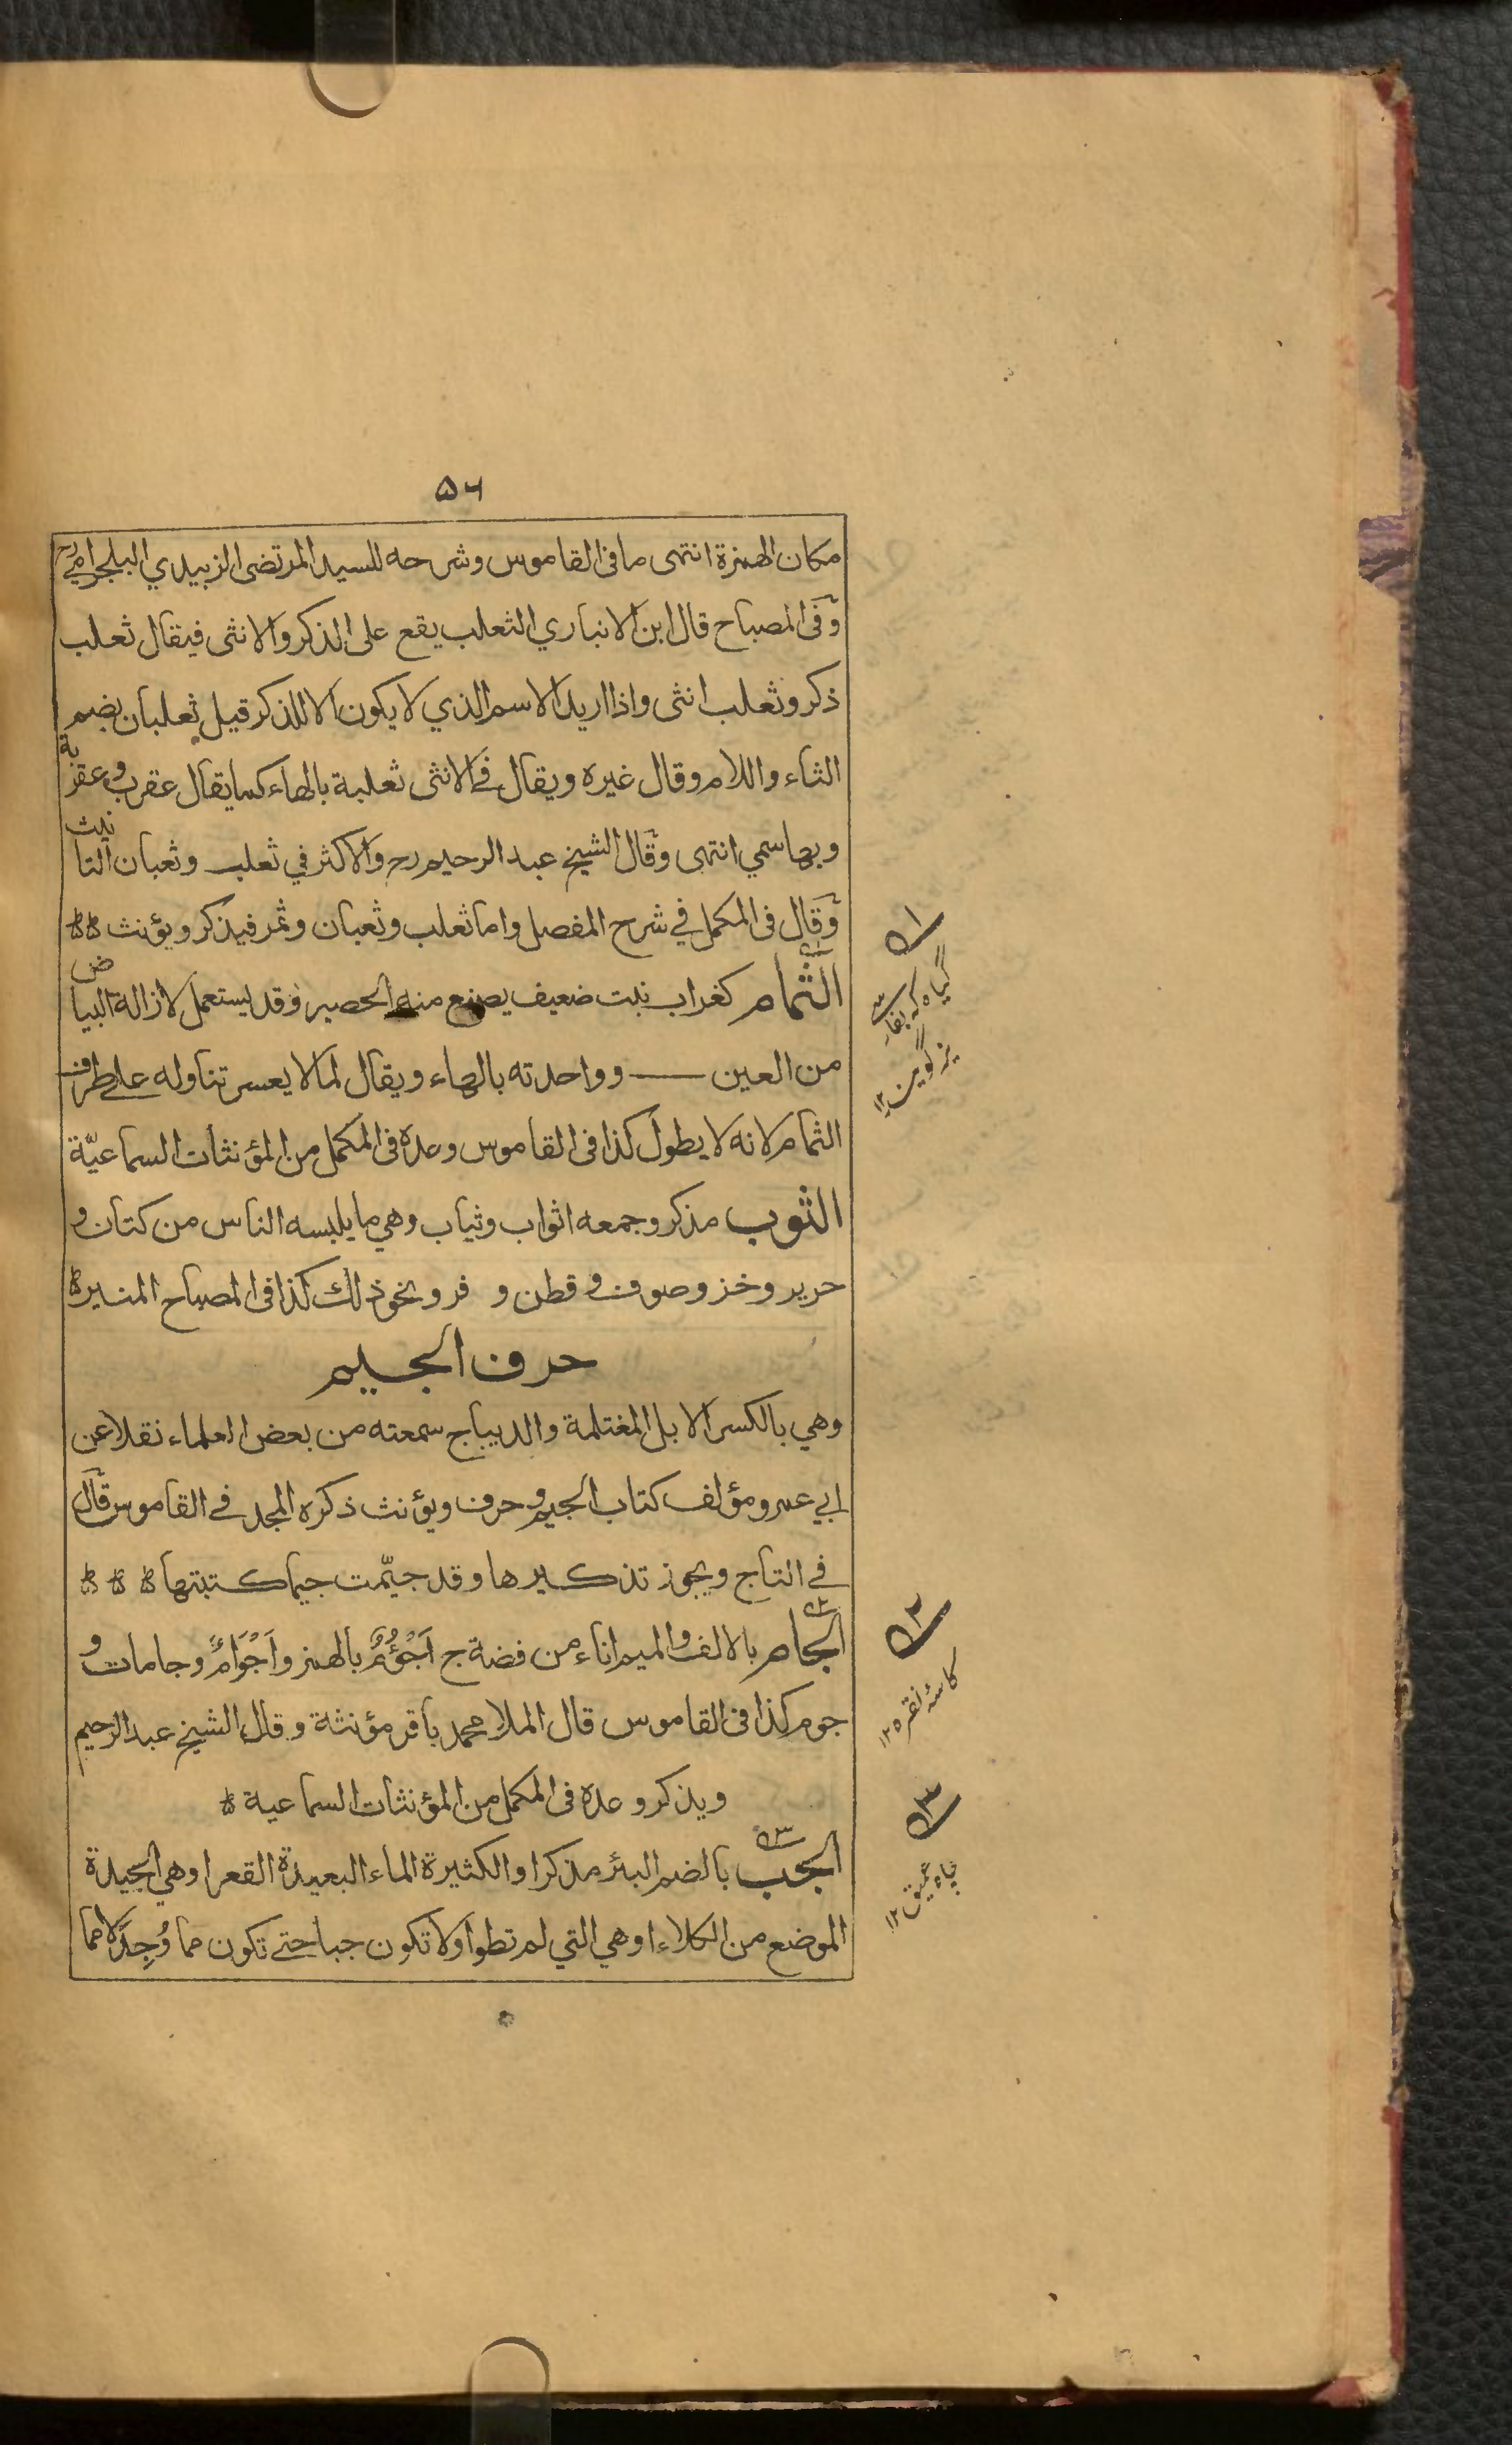 ۵۶
مكان الهمزة انتهى ما فى القاموس وشرحه للسيد المرتضى الزبيدي البلجرامي رح
وفى المصباح قال ابن الانباري الثعلب يقع على الذكر والانثى فيقال ثعلب
ذكر وثعلب انثى واذا اريد الاسم الذي لا يكون الا للذكر قيل ثعلبان بضم
الثاء واللام وقال غيره ويقال في الانثى ثعلبة بالهاء كما يقال عقرب وعقربة
وبها سمي انتهى وقال الشيخ عبد الرحيم رح والاكثر في ثعلب وثعبان التانيث
وقال فى المكمل في شرح المفصل واما ثعلب وثعبان وثمر فيذكر ويؤنث
الثمام كغراب نبت ضعيف يصنع منه الحصير وقد يستعمل لازالة البياض
من العين ــــ وواحدته بالهاء ويقال لما لا يعسر تناوله على طرف
الثمام لانه لا يطول كذا فى القاموس وعده فى المكمل من المؤنثات السماعيّة
الثوب مذكر وجمعه اثواب وثياب وهي ما يلبسه الناس من كتان و
حرير وخز وصوف و قطن و فرو نحو ذلك كذا فى المصباح المنير
حرف الجيم
وهي بالكسر الابل المغتلمة والديباج سمعته من بعض العلماء نقلا عن
ابي عمرو مؤلف كتاب الجيم و حرف ويؤنث ذكره المجد في القاموس قال
في التاج ويجوز تذكيرها وقد جيّمت جيما كتبتها
الجام بالالف والميم اناء من فضة ج اَجْؤُمٌ بالهمز واَجْوَامٌ وجامات و
جوم كذا فى القاموس قال الملا محمد باقر مؤنثة وقال الشيخ عبد الرحيم
ويذكر وعده فى المكمل من المؤنثات السماعية
الجب بالضم البئر مذكر او الكثيرة الماء البعيدة القعر او هي الجيدة
الموضع من الكلاء او هي التي لم تطو او لا تكون جبا حتے تكون مما وُجِدَ لا مما
۱
گیاه که بفارسی
یز گویند ۱۲
۲
کاسۂ نقره ۱۲
۳
چاه عمیق ۱۲